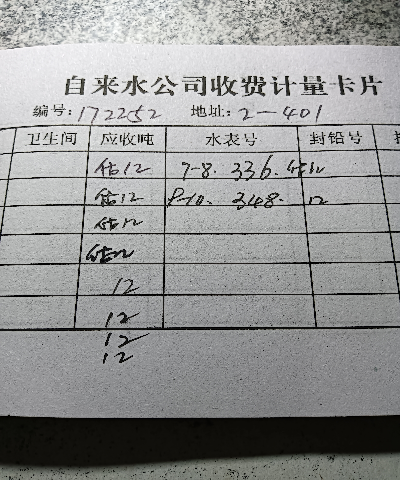 自来水公司收费计量卡片
编号:172252 地址:2-401
卫生间 应收吨 水表号 封铅号
估12 7-8. 336. 估12
估12 8-10. 348. 12
估12
估12
12
12
12
12